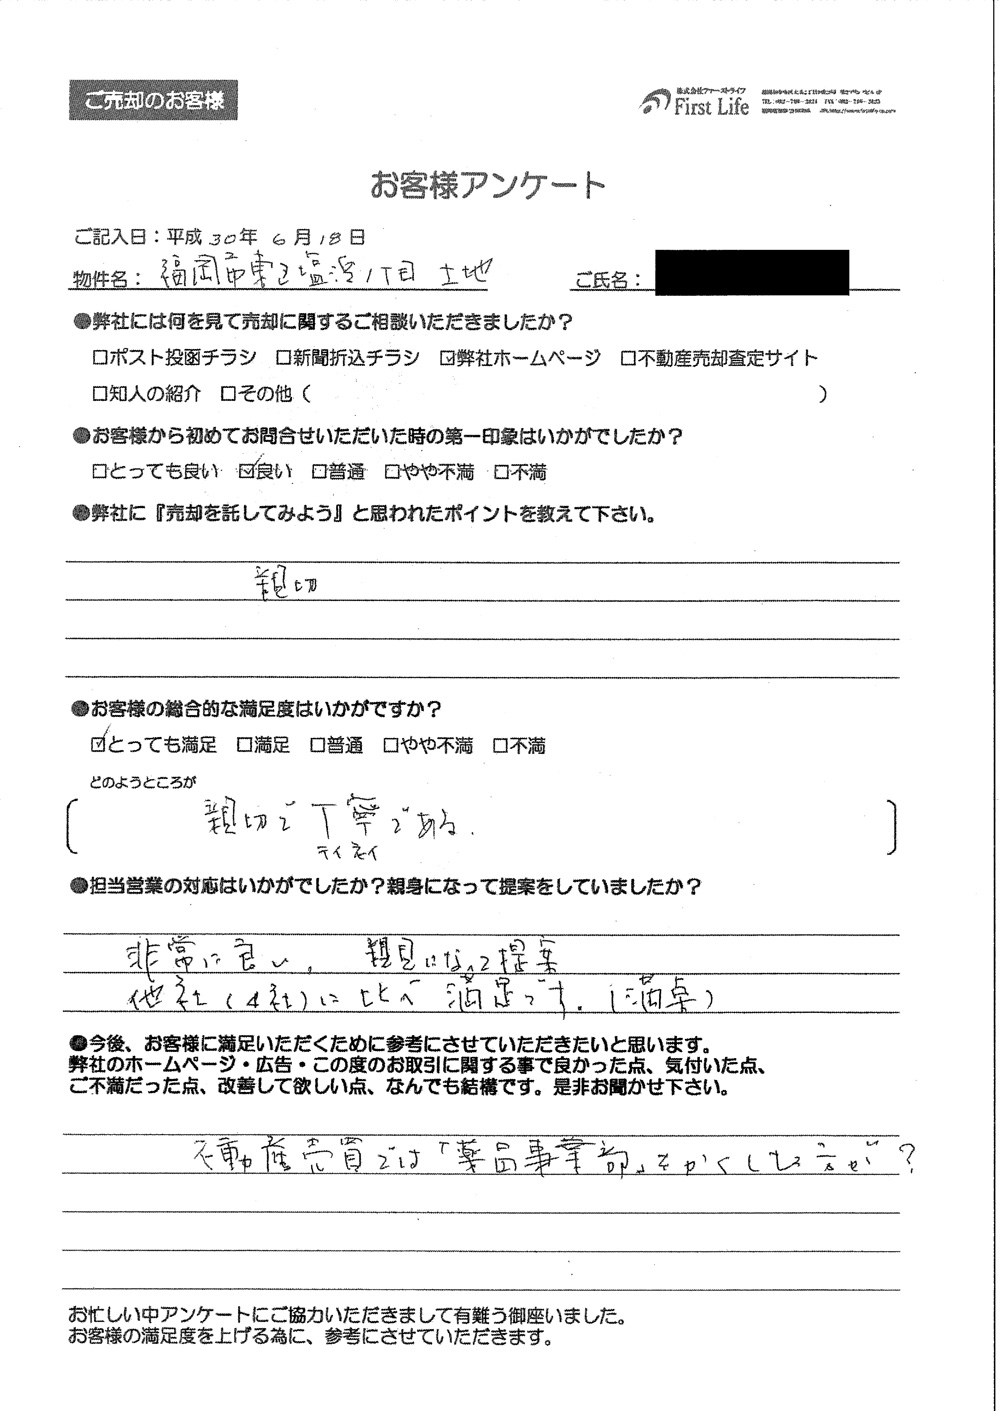 ご売却のお客様
株式会社ファーストライフ
First Life
お客様アンケート
ご記入日：平成 30年 6月 18日
物件名： 福岡市東区塩浜1丁目 土地 ご氏名：
●弊社には何を見て売却に関するご相談いただきましたか？
□ポスト投函チラシ □新聞折込チラシ ☑弊社ホームページ □不動産売却査定サイト
□知人の紹介 □その他（ ）
●お客様から初めてお問合せいただいた時の第一印象はいかがでしたか？
□とっても良い ☑良い □普通 □やや不満 □不満
●弊社に『売却を託してみよう』と思われたポイントを教えて下さい。
親切
●お客様の総合的な満足度はいかがですか？
☑とっても満足 □満足 □普通 □やや不満 □不満
どのようところが
親切で丁寧である.
テイネイ
●担当営業の対応はいかがでしたか？親身になって提案をしていましたか？
非常に良い、 親身になって提案
他社(4社)に比べ満足です.(満点)
●今後、お客様に満足いただくために参考にさせていただきたいと思います。
弊社のホームページ・広告・この度のお取引に関する事で良かった点、気付いた点、
ご不満だった点、改善して欲しい点、なんでも結構です。是非お聞かせ下さい。
不動産売買では「薬品事業部」をかくした方が?
お忙しい中アンケートにご協力いただきまして有難う御座いました。
お客様の満足度を上げる為に、参考にさせていただきます。